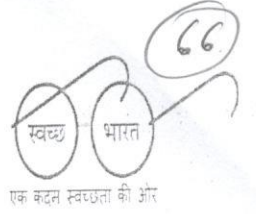 66
स्वच्छ भारत
एक कदम स्वच्छता की ओर